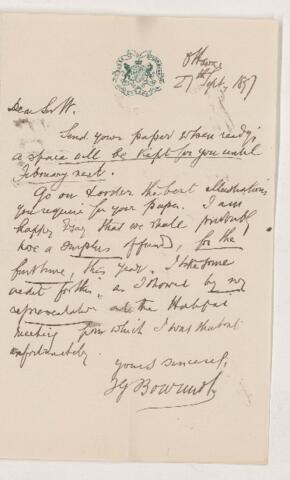 Ottawa
27th Sept, 1897
Dear Sir W.
Send your paper when ready,
a space will be kept for you until
February next.
Go on & order the best illustrations
you require for your paper. I am
happy to say that we shall probably
have a surplus of fund, for the
first time, this year. I take some
credit for this, as I showed by my
representation at the Halifax
meeting from which I was absent
unfortunately.
Yours sincerely,
J G Bourinot